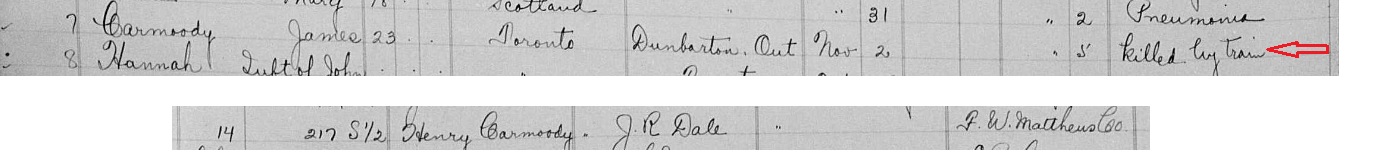 Mary 18 Scotland " " 31 " 2 Pneumonia
7 Carmody James 23 . . Toronto Dunbarton. Ont Nov 2 " 5 killed by train
8 Hannah Inft of John
14 217 S½ Henry Carmody. J. R Dale " F. W. Matthews Co.